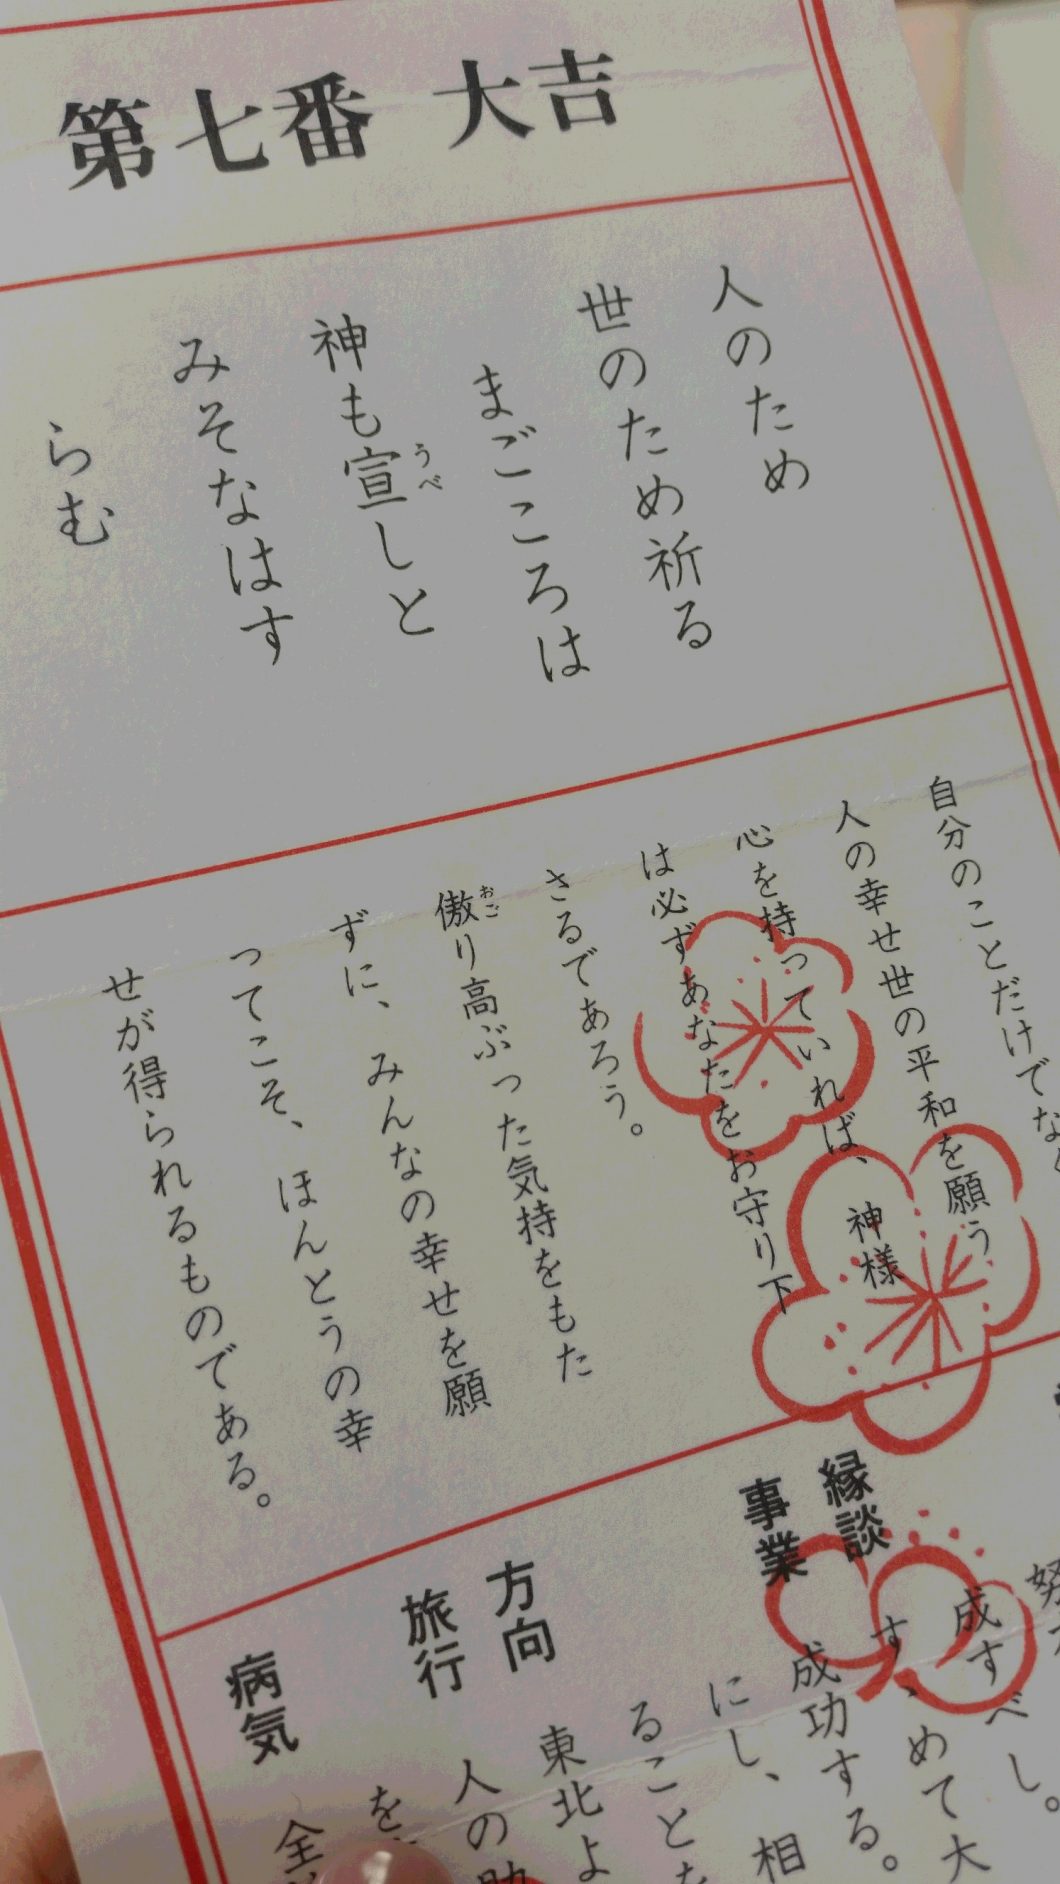 第七番 大吉
人のため
世のため祈る
まごころは
神も宣しと
うべ
みそなはす
らむ
自分のことだけでなく
人の幸せ世の平和を願う
心を持っていれば、神様
は必ずあなたをお守り下
さるであろう。
傲り高ぶった気持をもた
おご
ずに、みんなの幸せを願
ってこそ、ほんとうの幸
せが得られるものである。
成すべし。
縁談
す、めて大
事業
成功する。
にし、相
ること
方向
東北よ
旅行
人の助
を
病気
全